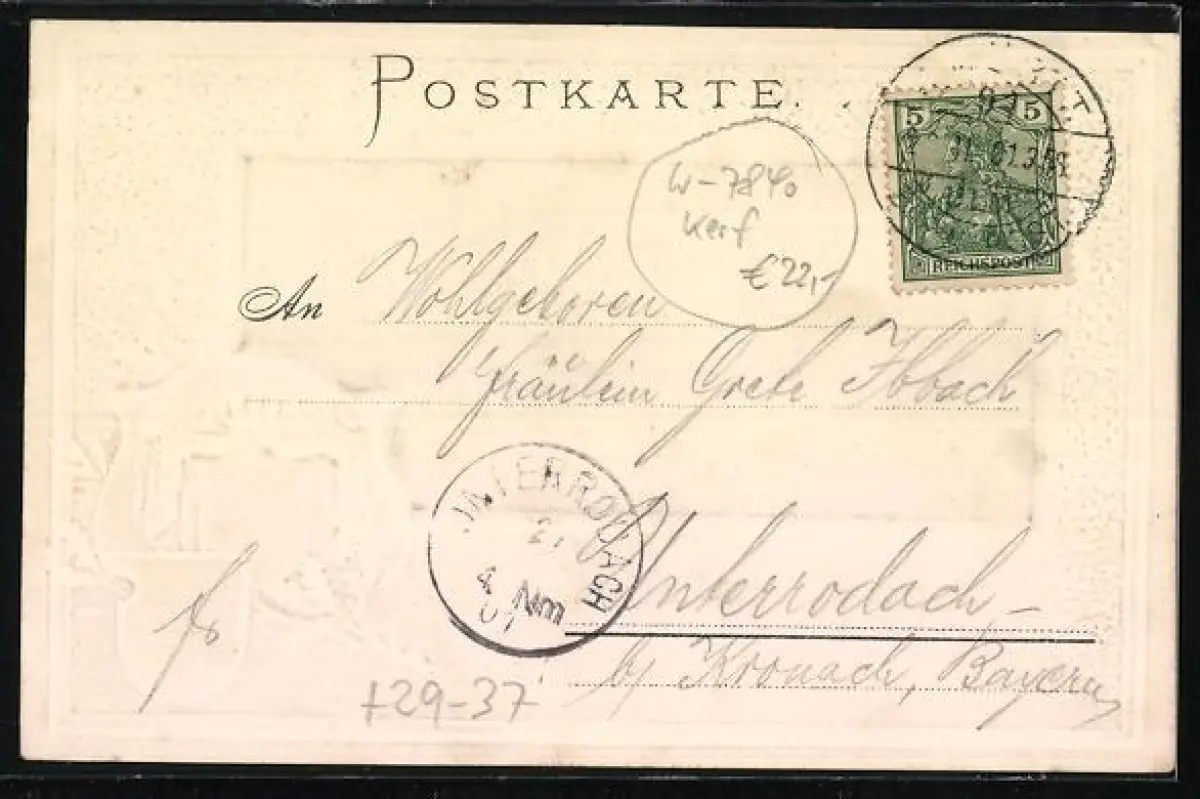 POSTKARTE.
5 5
REICHSPOST
W-7840
Kerf
€22,-
An Wohlgeboren
Fräulein Grete Ibbach
UNTERRODACH
4 Nm
Unterrodach -
b/ Kronach, Bayern
fr.
+29-37